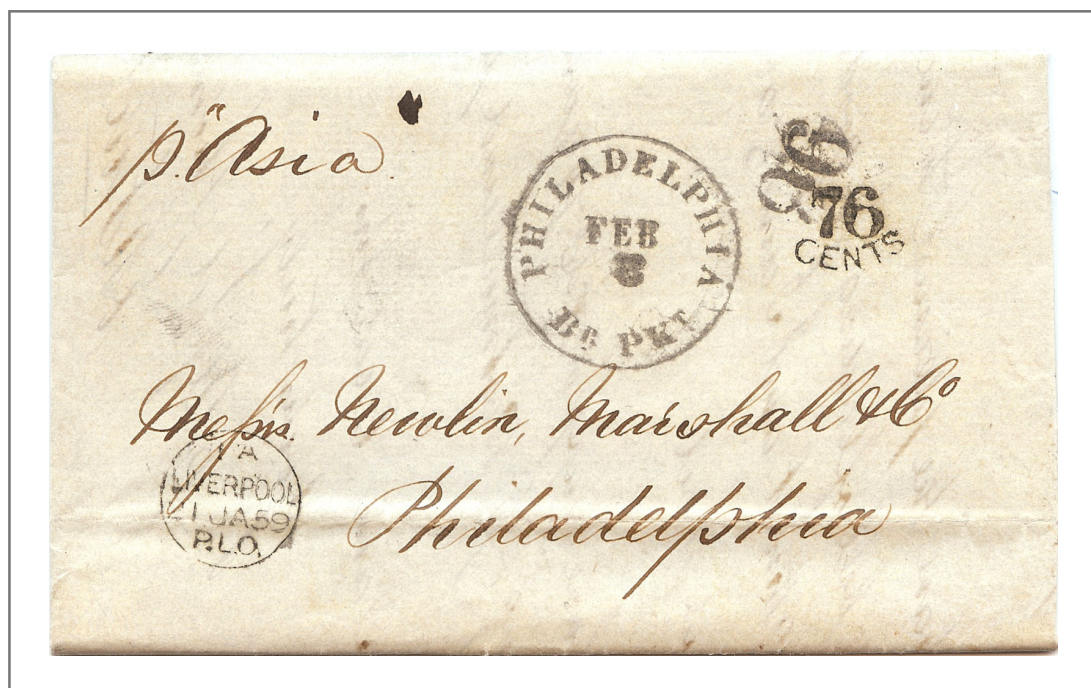 p. "Asia"
PHILADELPHIA
FEB
8
Br. PKT
96
76
CENTS
Messrs. Newlin, Marshall & Co
Philadelphia
LIVERPOOL
JA59
P.L.O.